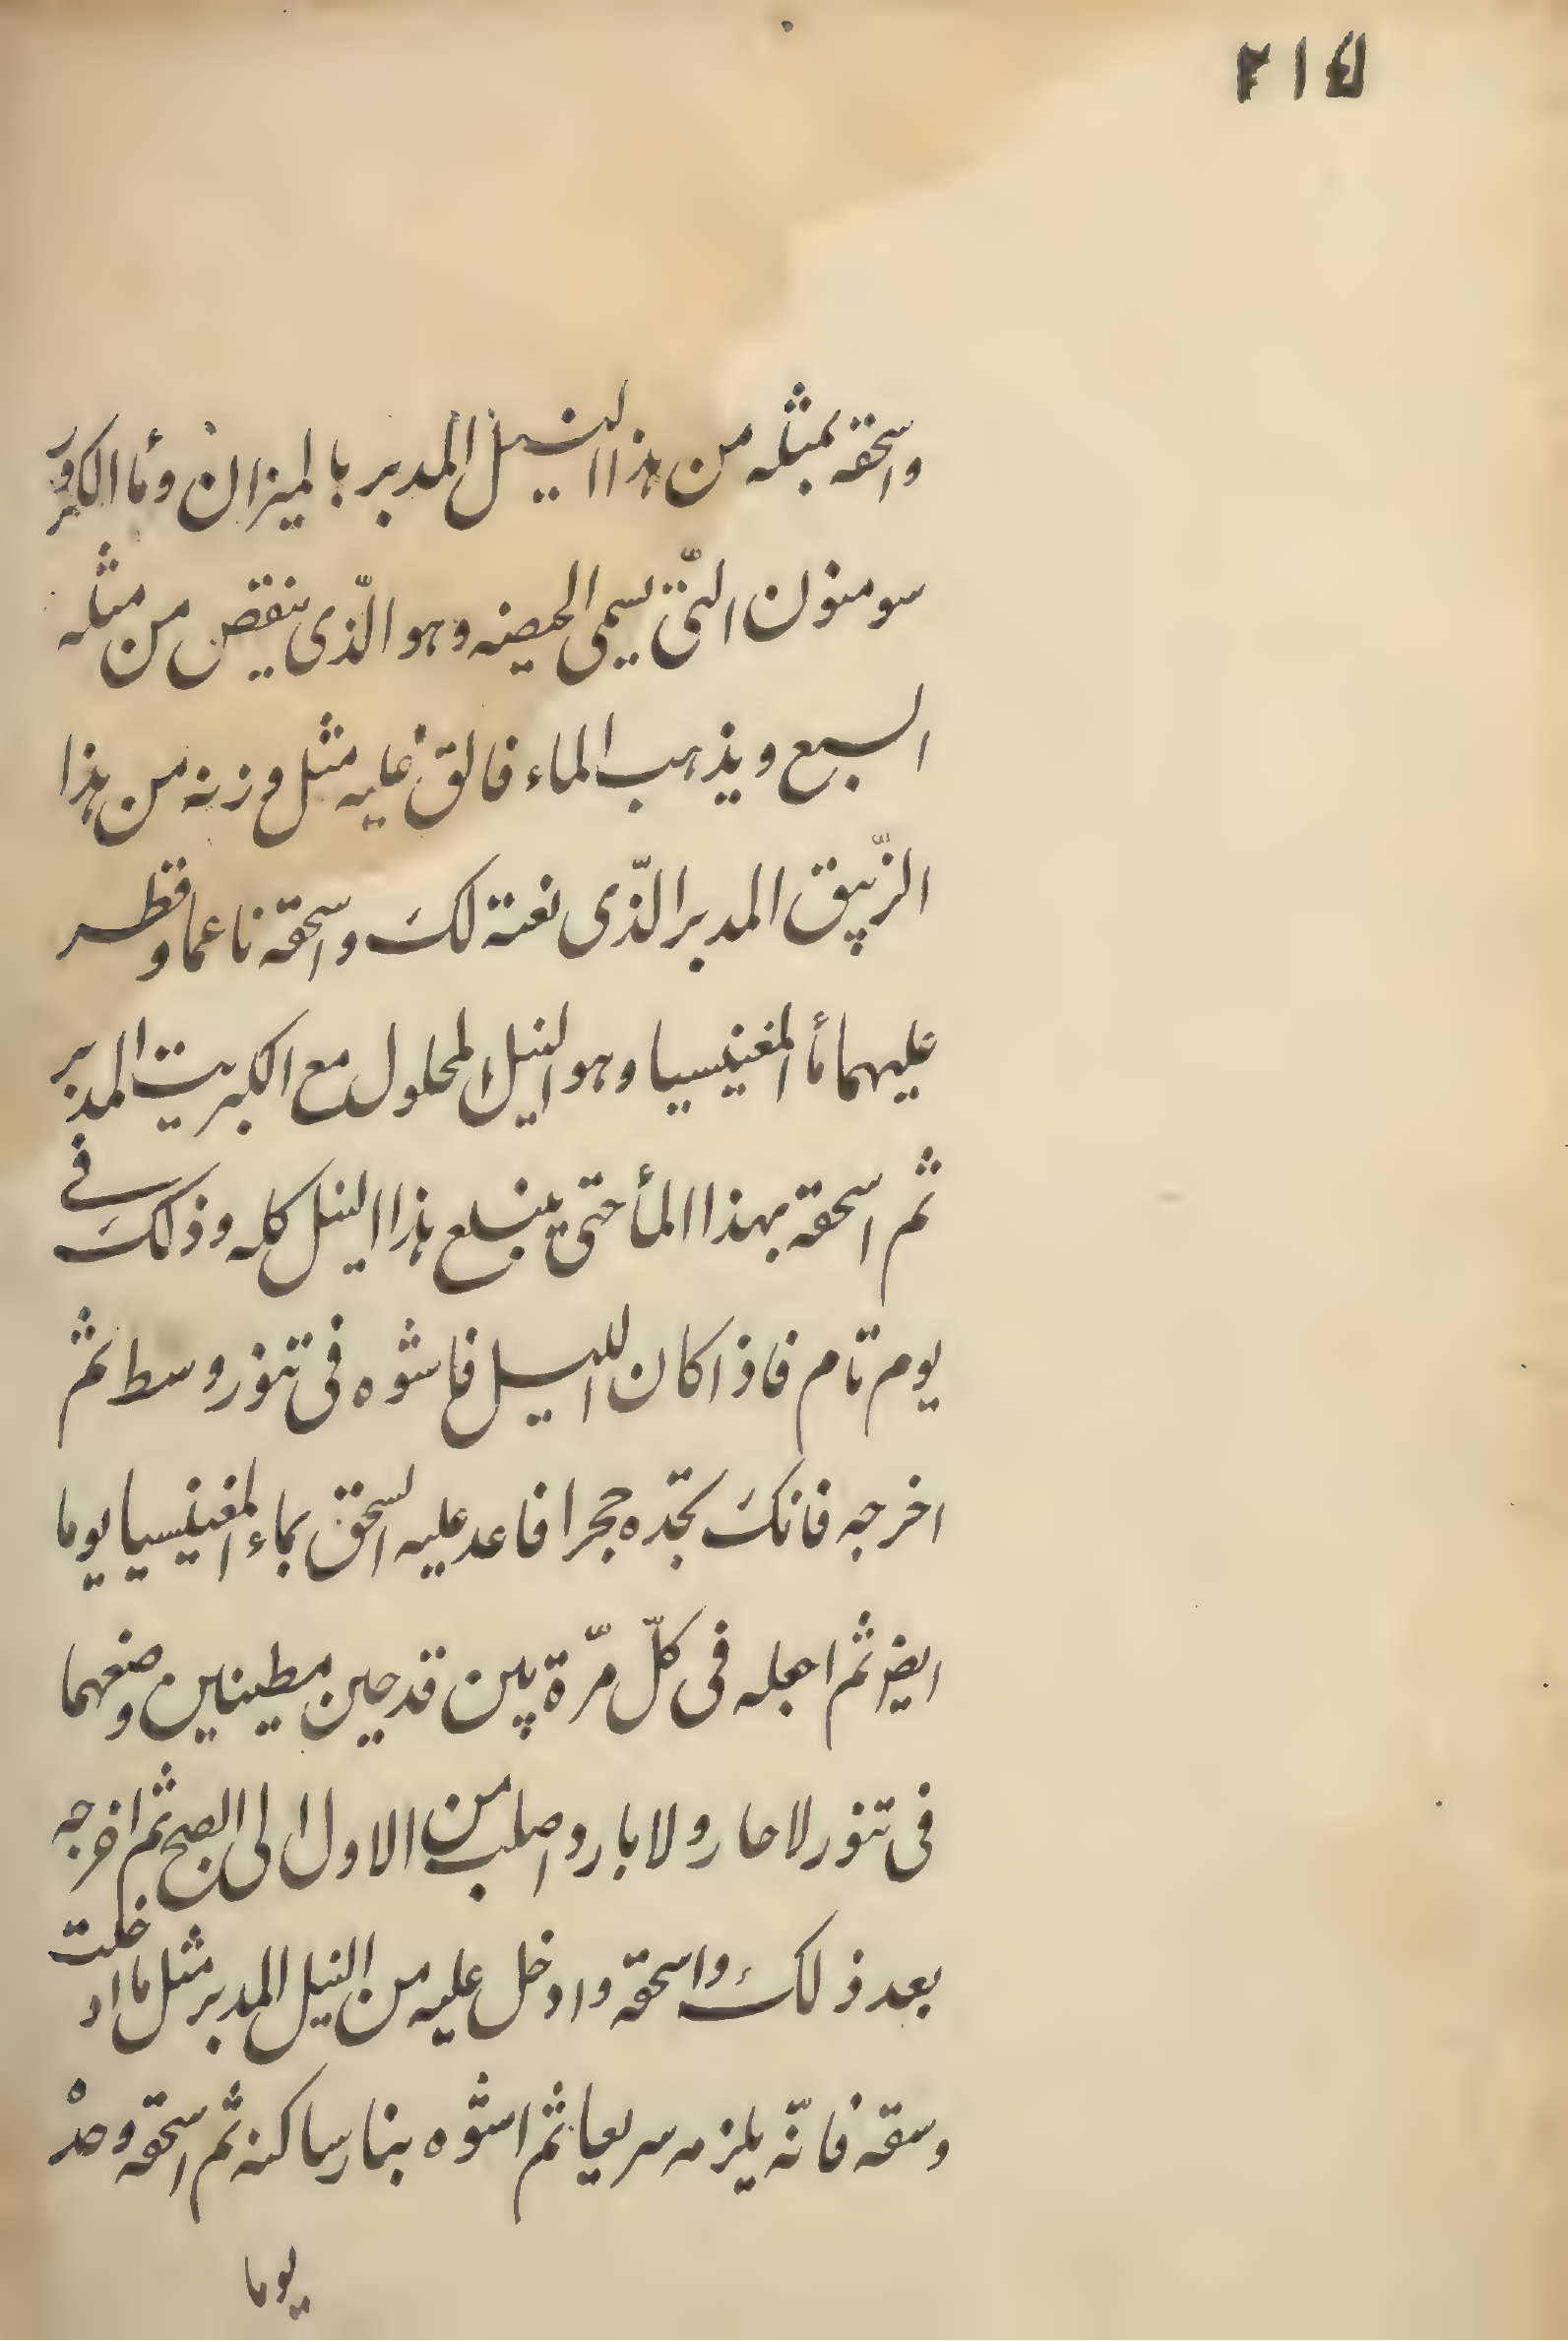 واسحقه بمثله من هذا النيل المدبر بالميزان وما
سومنون التی یسمی الحمصنه وهو الّذی ینقص من مثله
السبع ویذهب الماء فالق علیه مثل وزنه من هذا
الزّیبق المدبر الّذی نعته لک واسحقه ناعما وقطر
علیهما مأ المغنیسیا وهو النیل المحلول مع الکبریت المدبر
ثم اسحقه بهذا المأ حتی یبلع هذا النیل کله وذلک فی
یوم تام فاذا کان اللیل فاشوه فی تنور وسط ثم
اخرجه فانک تجده حجرا فاعد علیه السحق بماء المغنیسیا یوما
ایضر ثم اجعله فی کلّ مرّة بین قدحین مطینین وضعهما
فی تنور لا حار ولا بارد اصلب من الاول الی الصبح ثم اخرجه
بعد ذلک واسحقه وادخل علیه من النیل المدبر مثل ما ادخلت
وسقه فانّه یلزمه سریعا ثم اشوه بنار ساکنه ثم اسحقه
یوما